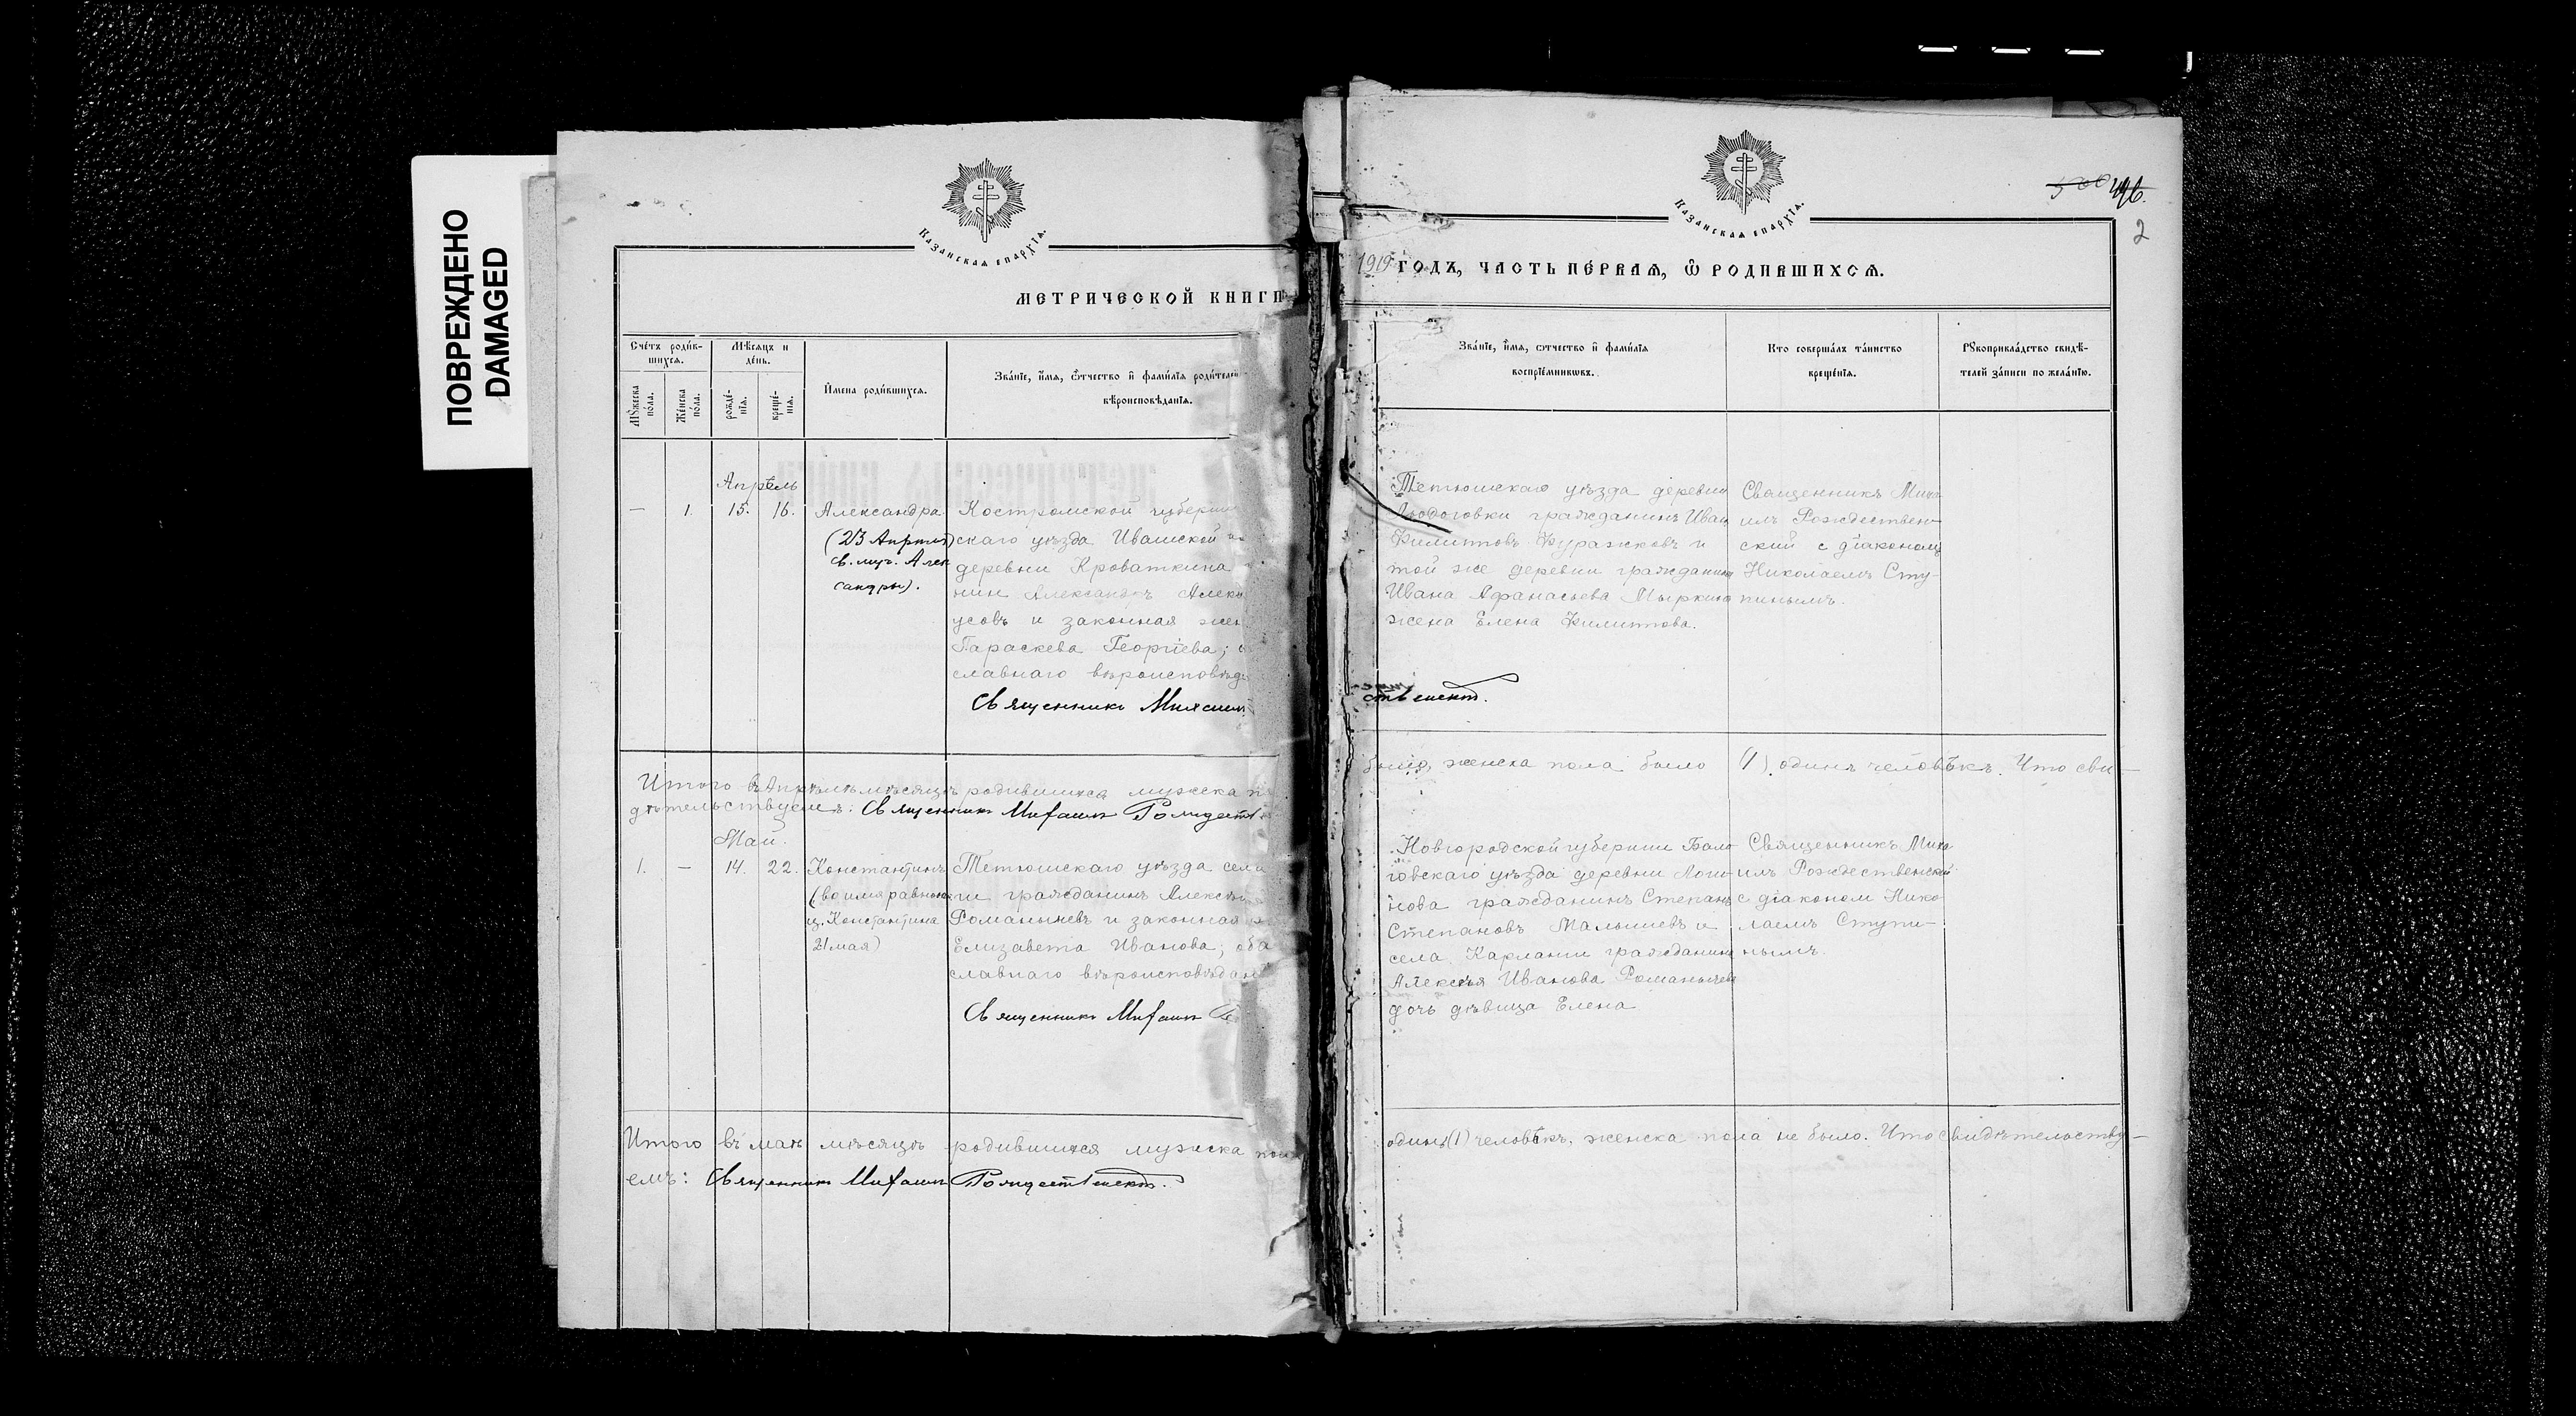 ПОВРЕЖДЕНО
DAMAGED
Казанская епархїѧ.
МЕТРИЧЕСКОЙ КНИГИ
Сче́тъ роди́в-
шихсѧ.
Мѣ́сѧцъ и
де́нь.
Мꙋ́жеска
по́ла.
Же́нска
по́ла.
рожде́-
нїѧ.
креще́-
нїѧ.
И҆мена роди́вшихсѧ.
Зва́нїе, и҆́мѧ, ѻ҆́тчество и҆ фами́лїѧ роди́телей
вѣ́роисповѣ́данїѧ.
Апрѣль
— 1. 15. 16. Александра
(23 Апрѣля)
св. муч. Алек
сандры).
Костромской губерніи
скаго уѣзда Ивашской
деревни Кроваткина
нин Александръ Алекс
усовъ и законная жен
Параскева Георгіева;
славнаго вѣроисповѣд
Священникъ Михаилъ
Итого въ Апрѣлѣ мѣсяцѣ родившихся мужска п
дѣтельствуемъ: Священникъ Михаилъ Рождеств
Май.
1. — 14. 22. Константинъ
(во имя равноап
ц. Константина
21 мая)
Тетюшскаго уѣзда села
ги гражданинъ Алексѣй
Романычевъ и законная
Елизавета Иванова; оба
славнаго вѣроисповѣдан
Священникъ Михаилъ
Итого въ маѣ мѣсяцѣ родившихся мужска пол
емъ: Священникъ Михаилъ Рождественскій.
Казанская епархїѧ.
500 496.
2
1919 ГОДЪ, ЧАСТЬ ПЕ́РВАѦ, Ѡ҆ РОДИВШИХСѦ.
Зва́нїе, и҆́мѧ, ѻтчество и҆ фами́лїѧ
воспрїе́мникѡвъ.
Кто соверша́лъ та́инство
креще́нїѧ.
Рꙋкоприкла́дство свидѣ́-
телей за́писи по жела́нїю.
Тетюшскаго уѣзда деревни
Людоговки гражданинъ Иван
Филипповъ Фуражковъ и
той же деревни гражданина
Ивана Афанасьева Мыркина
жена Елена Филиппова.
Священникъ Миха-
илъ Рождествен-
ский с діакономъ
Николаемъ Сту-
пинымъ.
ственскій.
было, женска пола было (1) один человѣкъ. Что сви-
Новгородской губерніи Бало-
говскаго уѣзда деревни Логи-
нова гражданинъ Степанъ
Степановъ Малышевъ и
села Карланги гражданина
Алексѣя Иванова Романычева
дочь дѣвица Елена
Священникъ Миха-
илъ Рождественскій
с діаконом Нико-
лаемъ Ступи-
нымъ.
один (1) человѣкъ, женска пола не было. Что свидѣтельству-